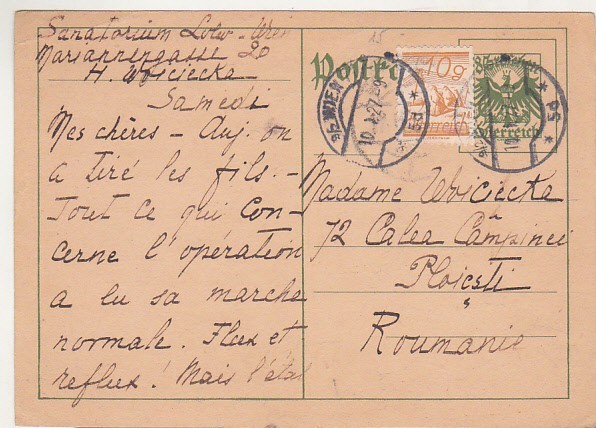 Sanatorium Loew - Wien
Mariannengasse 20
H. Wojciecka
Samedi
Mes chères - Auj. on
a tiré les fils. -
Tout ce qui con-
cerne l'opération
a lu sa marche
normale. Flux et
reflux! Mais l'état
15
Postka
10 g
Österreich
Österreich
WIEN
10.
27-9
Madame Wojciecka
72 Calea Câmpinei
Ploiesti
Roumanie